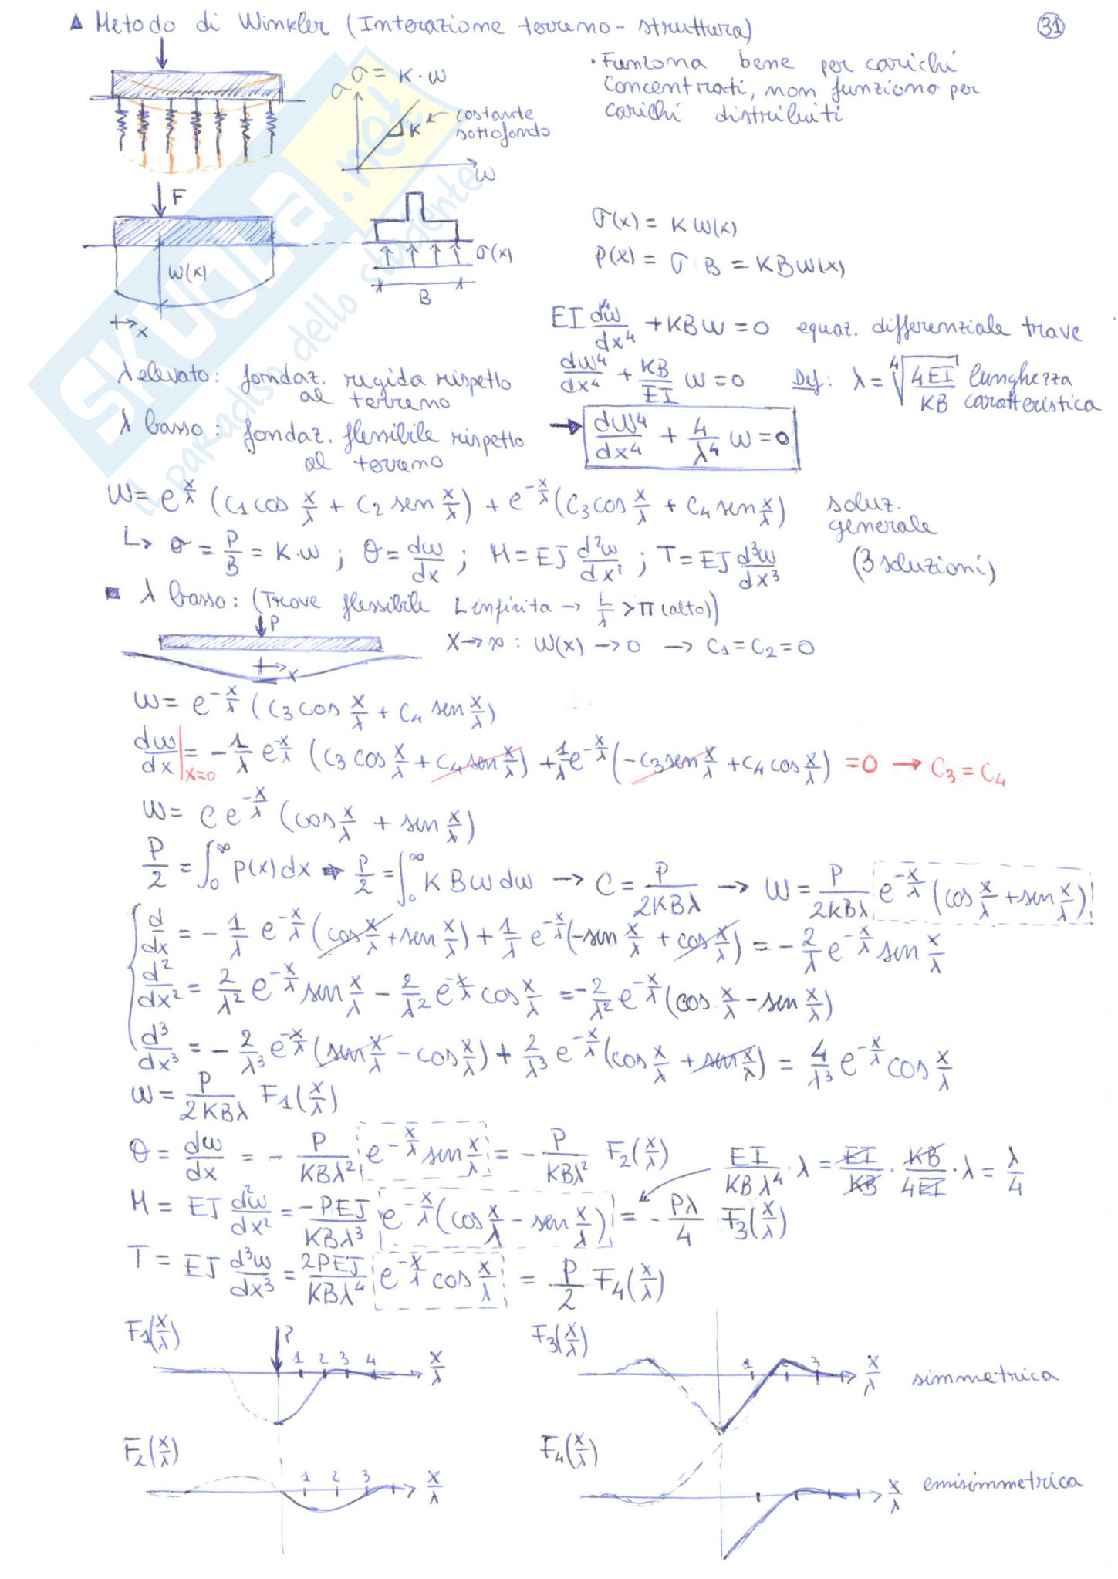 Δ Metodo di Winkler (Interazione terreno-struttura) 31
σ = K·w
σ
costante
sottofondo
K
w
• Funziona bene per carichi
concentrati, non funziona per
carichi distribuiti
F
w(x)
x
σ(x)
B
σ(x) = K w(x)
p(x) = σ B = KBw(x)
EI dw⁴/dx⁴ + KBw = 0 equaz. differenziale trave
dw⁴/dx⁴ + KB/EI w = 0 Def: λ = ⁴√(4EI/KB) lunghezza
caratteristica
→ dw⁴/dx⁴ + 4/λ⁴ w = 0
λ elevato: fondaz. rigida rispetto
al terreno
λ basso: fondaz. flessibile rispetto
al terreno
w = e^(x/λ) (c₁ cos x/λ + c₂ sen x/λ) + e^(-x/λ) (c₃ cos x/λ + c₄ sen x/λ) soluz.
generale
↳ σ = P/B = K·w ; θ = dw/dx ; M = EJ d²w/dx² ; T = EJ d³w/dx³ (3 soluzioni)
■ λ basso: (Trave flessibile L infinita → L/λ > π (alto))
P
x
x→∞ : w(x) → 0 → c₁ = c₂ = 0
w = e^(-x/λ) (c₃ cos x/λ + c₄ sen x/λ)
dw/dx |x=0 = - 1/λ e^(-x/λ) (c₃ cos x/λ + c₄ sen x/λ) + 1/λ e^(-x/λ) (-c₃ sen x/λ + c₄ cos x/λ) = 0 → c₃ = c₄
w = c e^(-x/λ) (cos x/λ + sen x/λ)
P/2 = ∫₀^∞ p(x)dx → P/2 = ∫₀^∞ K B w dw → C = P/2KBλ → w = P/2KBλ e^(-x/λ) (cos x/λ + sen x/λ)
d/dx = - 1/λ e^(-x/λ) (cos x/λ + sen x/λ) + 1/λ e^(-x/λ) (-sen x/λ + cos x/λ) = - 2/λ e^(-x/λ) sen x/λ
d²/dx² = 2/λ² e^(-x/λ) sen x/λ - 2/λ² e^(-x/λ) cos x/λ = - 2/λ² e^(-x/λ) (cos x/λ - sen x/λ)
d³/dx³ = - 2/λ³ e^(-x/λ) (sen x/λ - cos x/λ) + 2/λ³ e^(-x/λ) (cos x/λ + sen x/λ) = 4/λ³ e^(-x/λ) cos x/λ
w = P/2KBλ F₁(x/λ)
θ = dw/dx = - P/KBλ² e^(-x/λ) sen x/λ = - P/KBλ² F₂(x/λ)
EI/KBλ⁴ · λ = EI/KB · KB/4EI · λ = λ/4
M = EJ d²w/dx² = -PEJ/KBλ³ e^(-x/λ) (cos x/λ - sen x/λ) = - Pλ/4 F₃(x/λ)
T = EJ d³w/dx³ = 2PEJ/KBλ⁴ e^(-x/λ) cos x/λ = P/2 F₄(x/λ)
F₁(x/λ) P 1 2 3 4 x/λ
F₃(x/λ) 1 2 3 x/λ simmetrica
F₂(x/λ) 1 2 3 x/λ
F₄(x/λ) x/λ emisimmetrica
SKUOLA.net
il paradiso dello studente